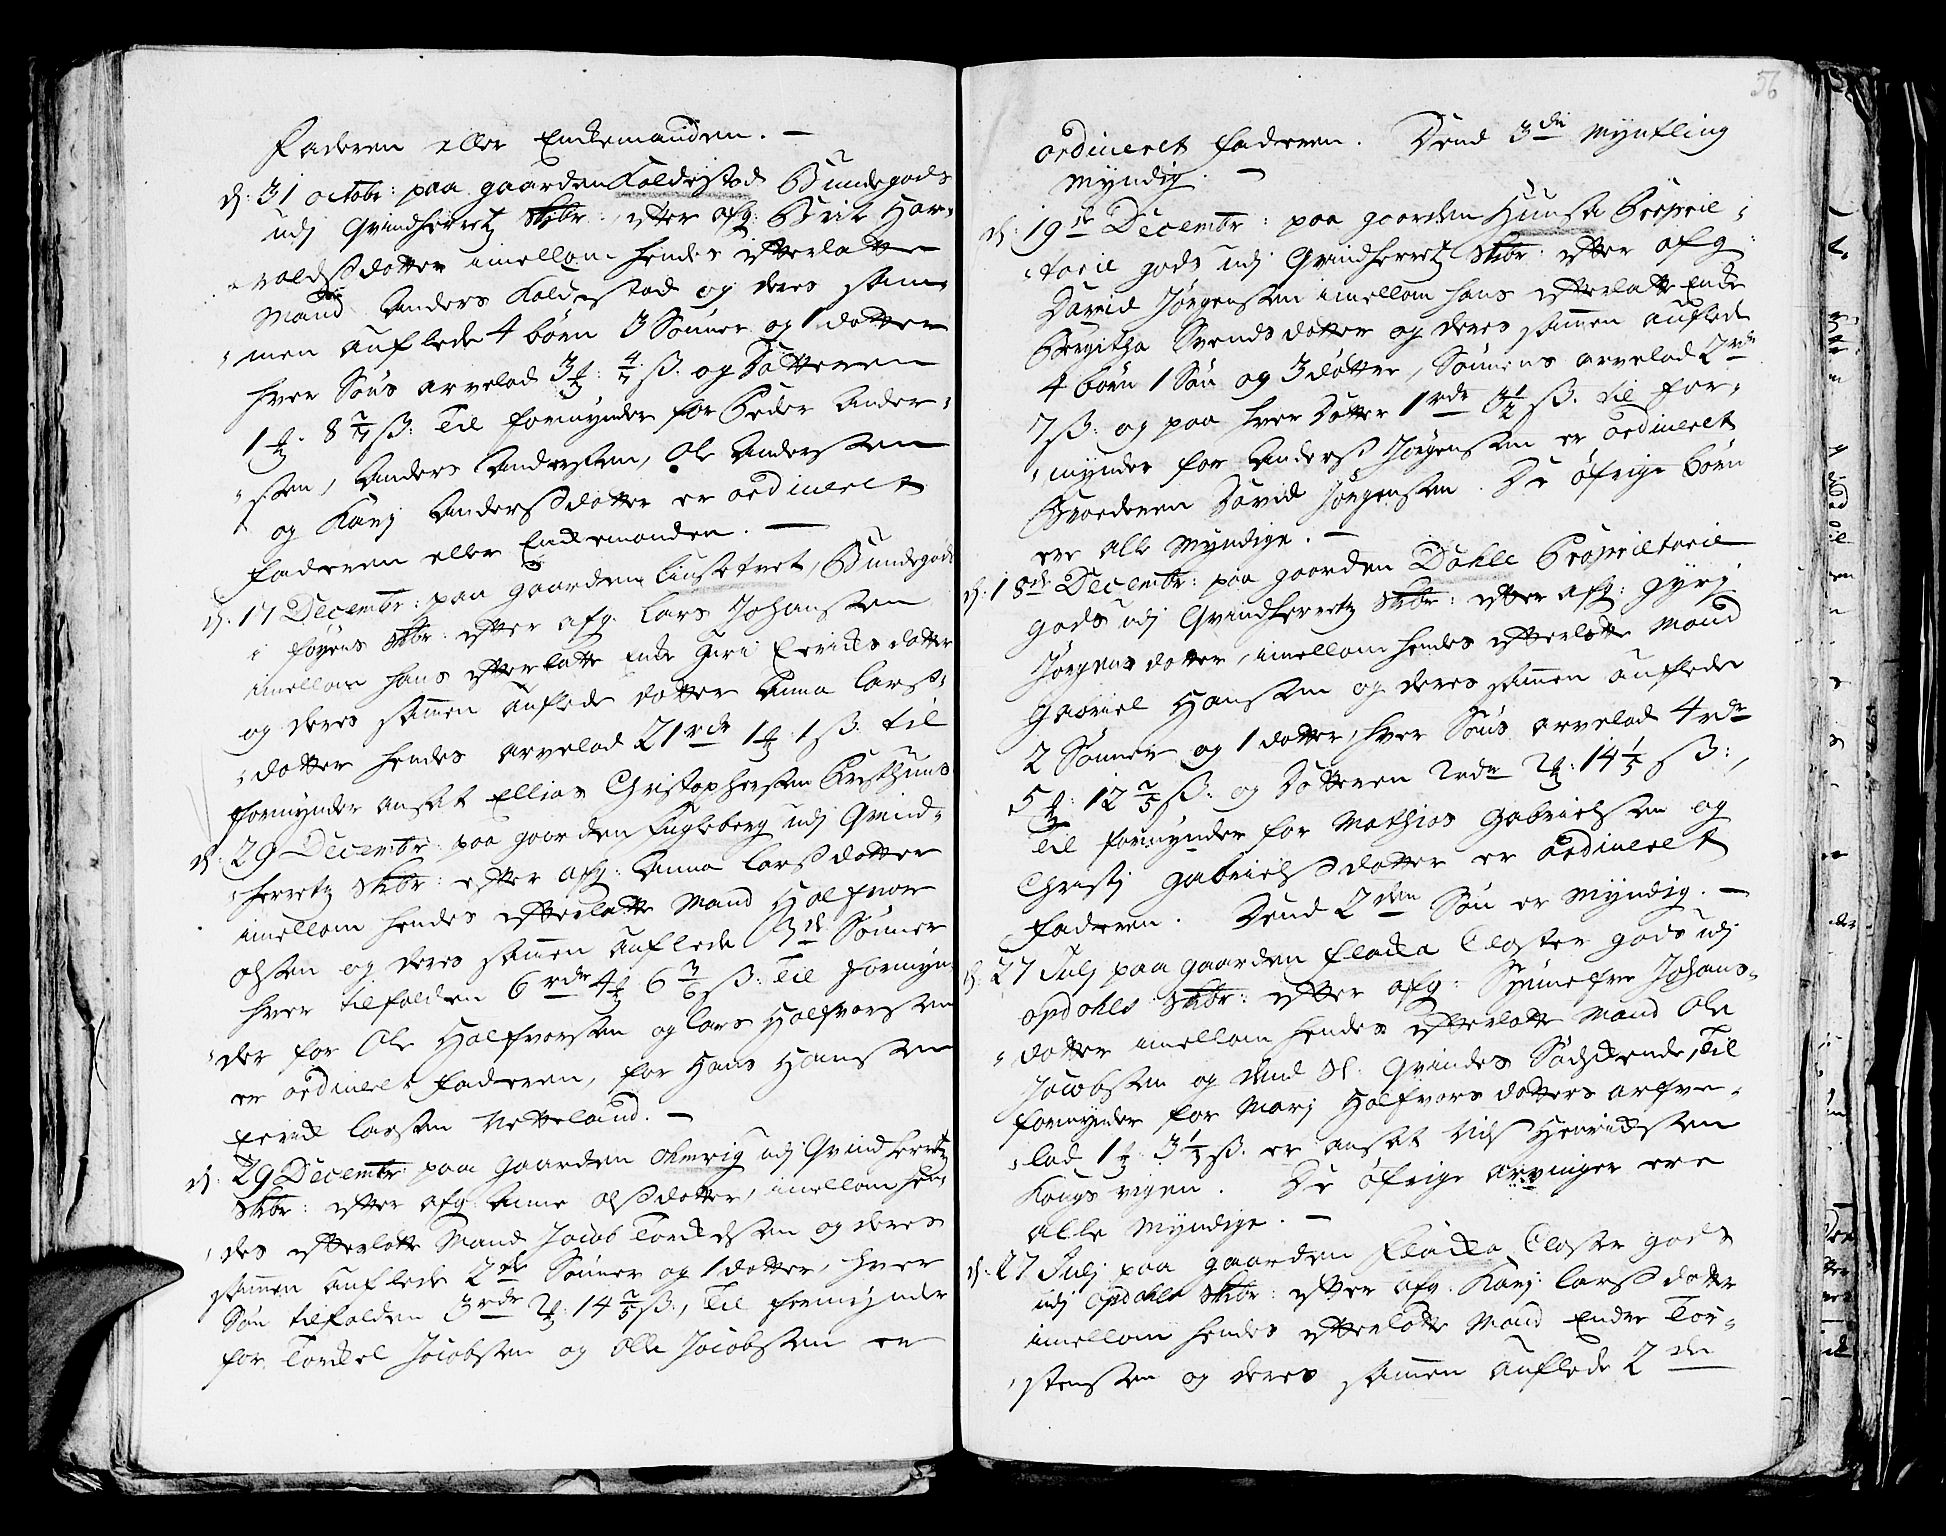 Faderen eller Enckemanden. —
d: 31 octobr: paa gaarden Koldestad Bundegods
udj Qvindherretz Skbr: efter afg: Brite Har-
-valdsdotter imellom hendes efterlatte
Mand Anders Koldestad og deres sam-
-men auflede 4 børn 3 Sønner og 1 dotter
hver Søns arvelod 3 ʒ: 4/7 ß. og Dotteren
1 ʒ. 8 2/7 ß: Til formynder for Peder Ander-
-ssen, Anders Anderssen, Ole Anderssen
og Karj Andersdotter er ordineret
Faderen eller Enckemanden. —
d: 17 Decembr: paa gaarden Liusetvet, Bundegods
i føyens Skbr: efter afg. Lars Johanssen
imellom hans efterlatte Encke Guri Eericksdotter
og deres sammen auflede dotter Anna Lars-
-dotter hendes arvelod 21 rdr 1 ʒ: 1 ß. til
formynder ansat Ellias Christophersen
d: 29 Decembr: paa gaarden Fugleberg udj Qvind-
-herretz Skbr: efter afg: Anna Larsdotter
imellom hendes efterlatte Mand Halfvor
olsen og deres sammen auflede 3de Sønner
hver tilfalden 6 rdr 4 ʒ 6 3/6 ß: Til formyn-
-der for Ole Halfvorssen og Lars Halfvorssen
er ordineret Faderen, for Hans Hanssen
Eerick Larssen Netteland. —
d: 29 Decembr: paa Gaarden omvig udj Qvindherretz
Skbr: efter afg: Anne olsdotter, imellom hen-
-des efterlatte Mand Jacob Torckelssen og deres
sammen auflede 2de Sønner og 1 dotter, hver
Søn tilfalden 3 rdr 2 ʒ: 14 2/5 ß:, Til formynder
for Torckel Jacobssen og Olle Jacobssen er
56
ordineret Faderen. Dend 3die Myntling
Myndig. —
d: 19de Decembr: paa gaarden Huuse PropriE-
-tarie gods udj Qvindherretz Skbr: efter afg:
David Jørgenssen imellom hans efterlatte Encke
Bergitha Svendsdotter og deres sammen auflede
4 børn 1 Søn og 3 døttre, Sønnens arvelod 2 rdr
7 ß: og paa hver Dotter 1 rdr 3 1/2 ß. til for-
-mynder for Anders Jørgenssen er ordineret
Broderen David Jørgenssen. De øfrige børn
ere alle Myndige. —
d: 18de Decembr: paa gaarden Dahle Proprietarie
gods udj Qvindherretz Skbr: efter afg: Gyrj
Jørgensdotter, imellom hendes efterlatte Mand
Gabriel Hanssen og deres sammen auflede
2 Sønner og 1 dotter, hver Søns arvelod 4 rdr
5 ʒ: 12 2/5 ß: og Dotteren 2 rdr 2 ʒ: 14 1/5 ß:,
til formynder for Mathias Gabrielssen og
Christj Gabrielsdotter er ordineret
Faderen. Dend 2den Søn er Myndig. —
d: 27 Julj paa gaarden Flacka Closter gods udj
opdahls Skbr: efter afg: Synnefve Johans-
-dotter imellom hendes efterlatte Mand Ole
Jacobssen og dend Sl: Qvindes Sødskende, Til
formynder for Marj Halfvorsdotters arfve-
-lod 1 ʒ: 3 1/3 ß. er ansat Nils Henrickssen
Kongsvigen. De øfrige arvinger ere
alle Myndige. —
d: 27 Julj paa gaarden Flacka Closter gods
udj Opdahls Skbr: efter afg: Karj Larsdotter
imellom hendes efterlatte Mand Endre Tor-
-stenssen og deres sammen auflede 2de